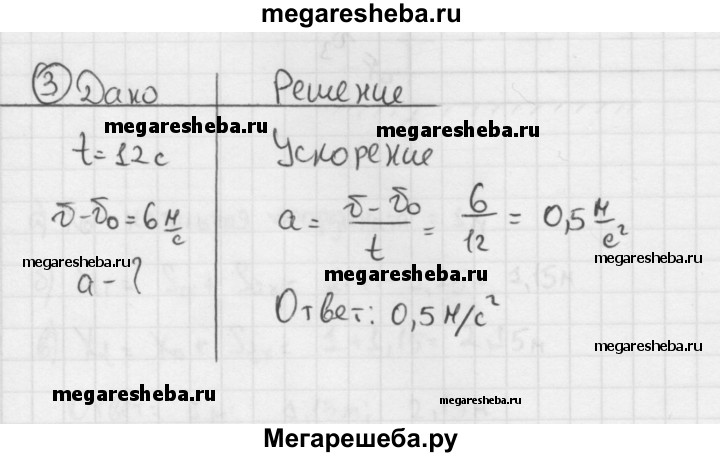 megaresheba.ru
③ Дано Решение
megaresheba.ru megaresheba.ru
t = 12 с Ускорение
υ - υ₀ = 6 м/с a = (υ - υ₀)/t = 6/12 = 0,5 м/с²
megaresheba.ru megaresheba.ru megaresheba.ru
a - ?
Ответ: 0,5 м/с²
megaresheba.ru
megaresheba.ru megaresheba.ru
Мегарешеба.ру